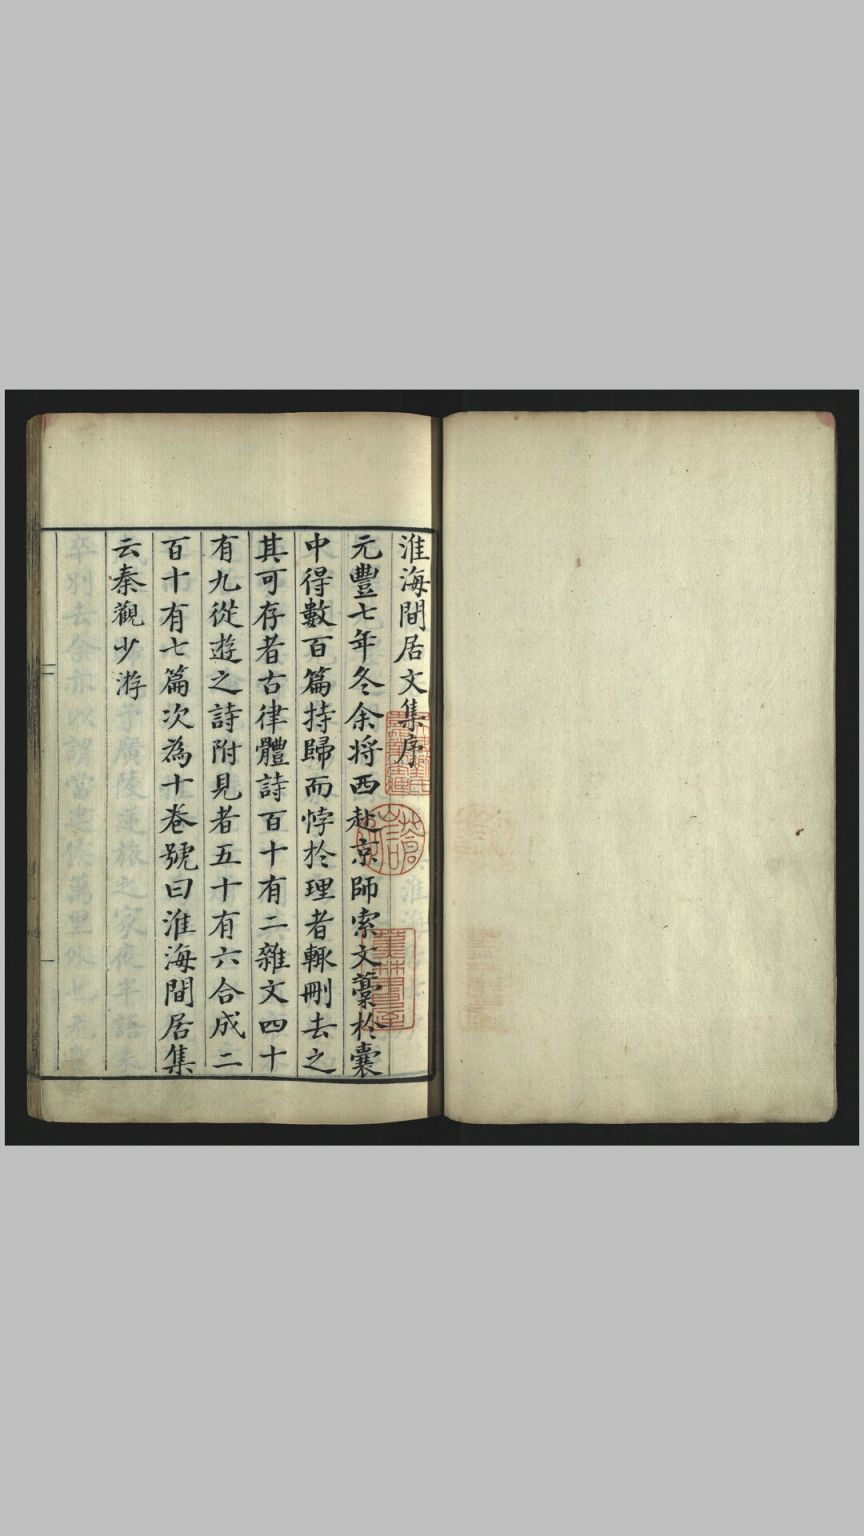 淮海閒居文集序
元豐七年冬余將西赴京師索文藁於囊
中得數百篇持歸而悖於理者輒刪去之
其可存者古律體詩百十有二雜文四十
有九從遊之詩附見者五十有六合成二
百十有七篇次為十卷號曰淮海閒居集
云秦觀少游